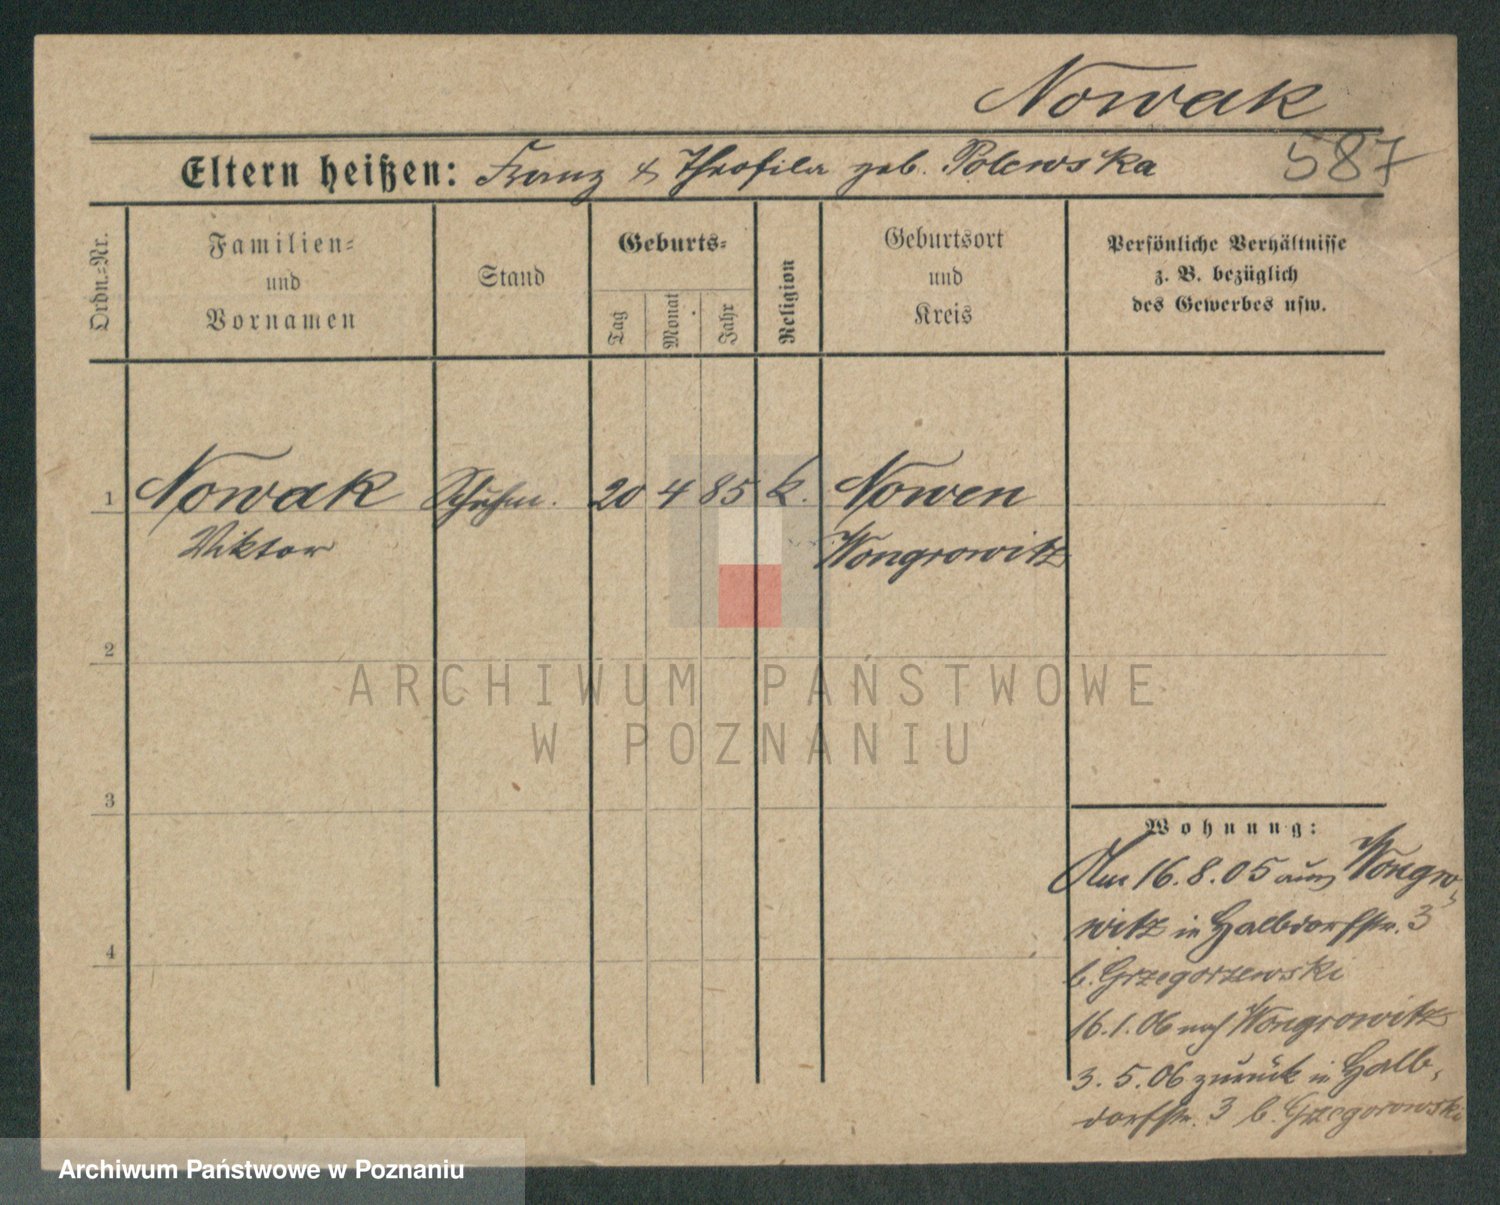 Nowak
587
Eltern heißen: Franz & Theofila geb. Polewska
Ordn.=Nr.
Familien=
und
Vornamen
Stand
Geburts=
Tag
Monat
Jahr
Religion
Geburtsort
und
Kreis
Persönliche Verhältnisse
z. B. bezüglich
des Gewerbes usw.
1 Nowak Schuhm. 20 4 85 k. Nowen
Viktor Wongrowitz
2
ARCHIWUM PAŃSTWOWE
W POZNANIU
3
4
Wohnung:
Am 16.8.05 aus Wongro-
witz in Halbdorfstr. 3
b. Grzegorzewski
16.1.06 nach Wongrowitz
3.5.06 zurück in Halb-
dorfstr. 3 b. Grzegorowski
Archiwum Państwowe w Poznaniu